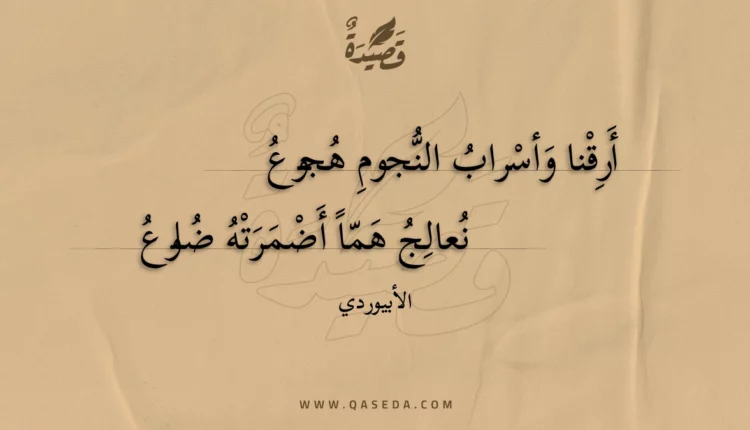 قَصِيدَةٌ
أَرِقْنا وَأسْرابُ النُّجومِ هُجوعُ
نُعالِجُ هَمّاً أَضْمَرَتْهُ ضُلوعُ
الأبيوردي
WWW.QASEDA.COM